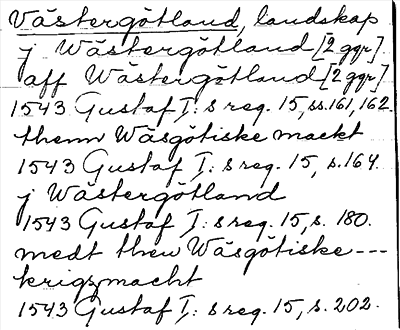 Västergötland, landskap
j Wästergötland [2 ggr].
aff Wästergötland [2 ggr]
1543 Gustaf I:s reg. 15, ss. 161, 162.
thenn Wäsgötiske mackt
1543 Gustaf I:s reg. 15, s. 164.
j Wästergötland
1543 Gustaf I:s reg. 15, s. 180.
medt then Wäsgötiske ---
krigzmacht
1543 Gustaf I:s reg. 15, s. 202.